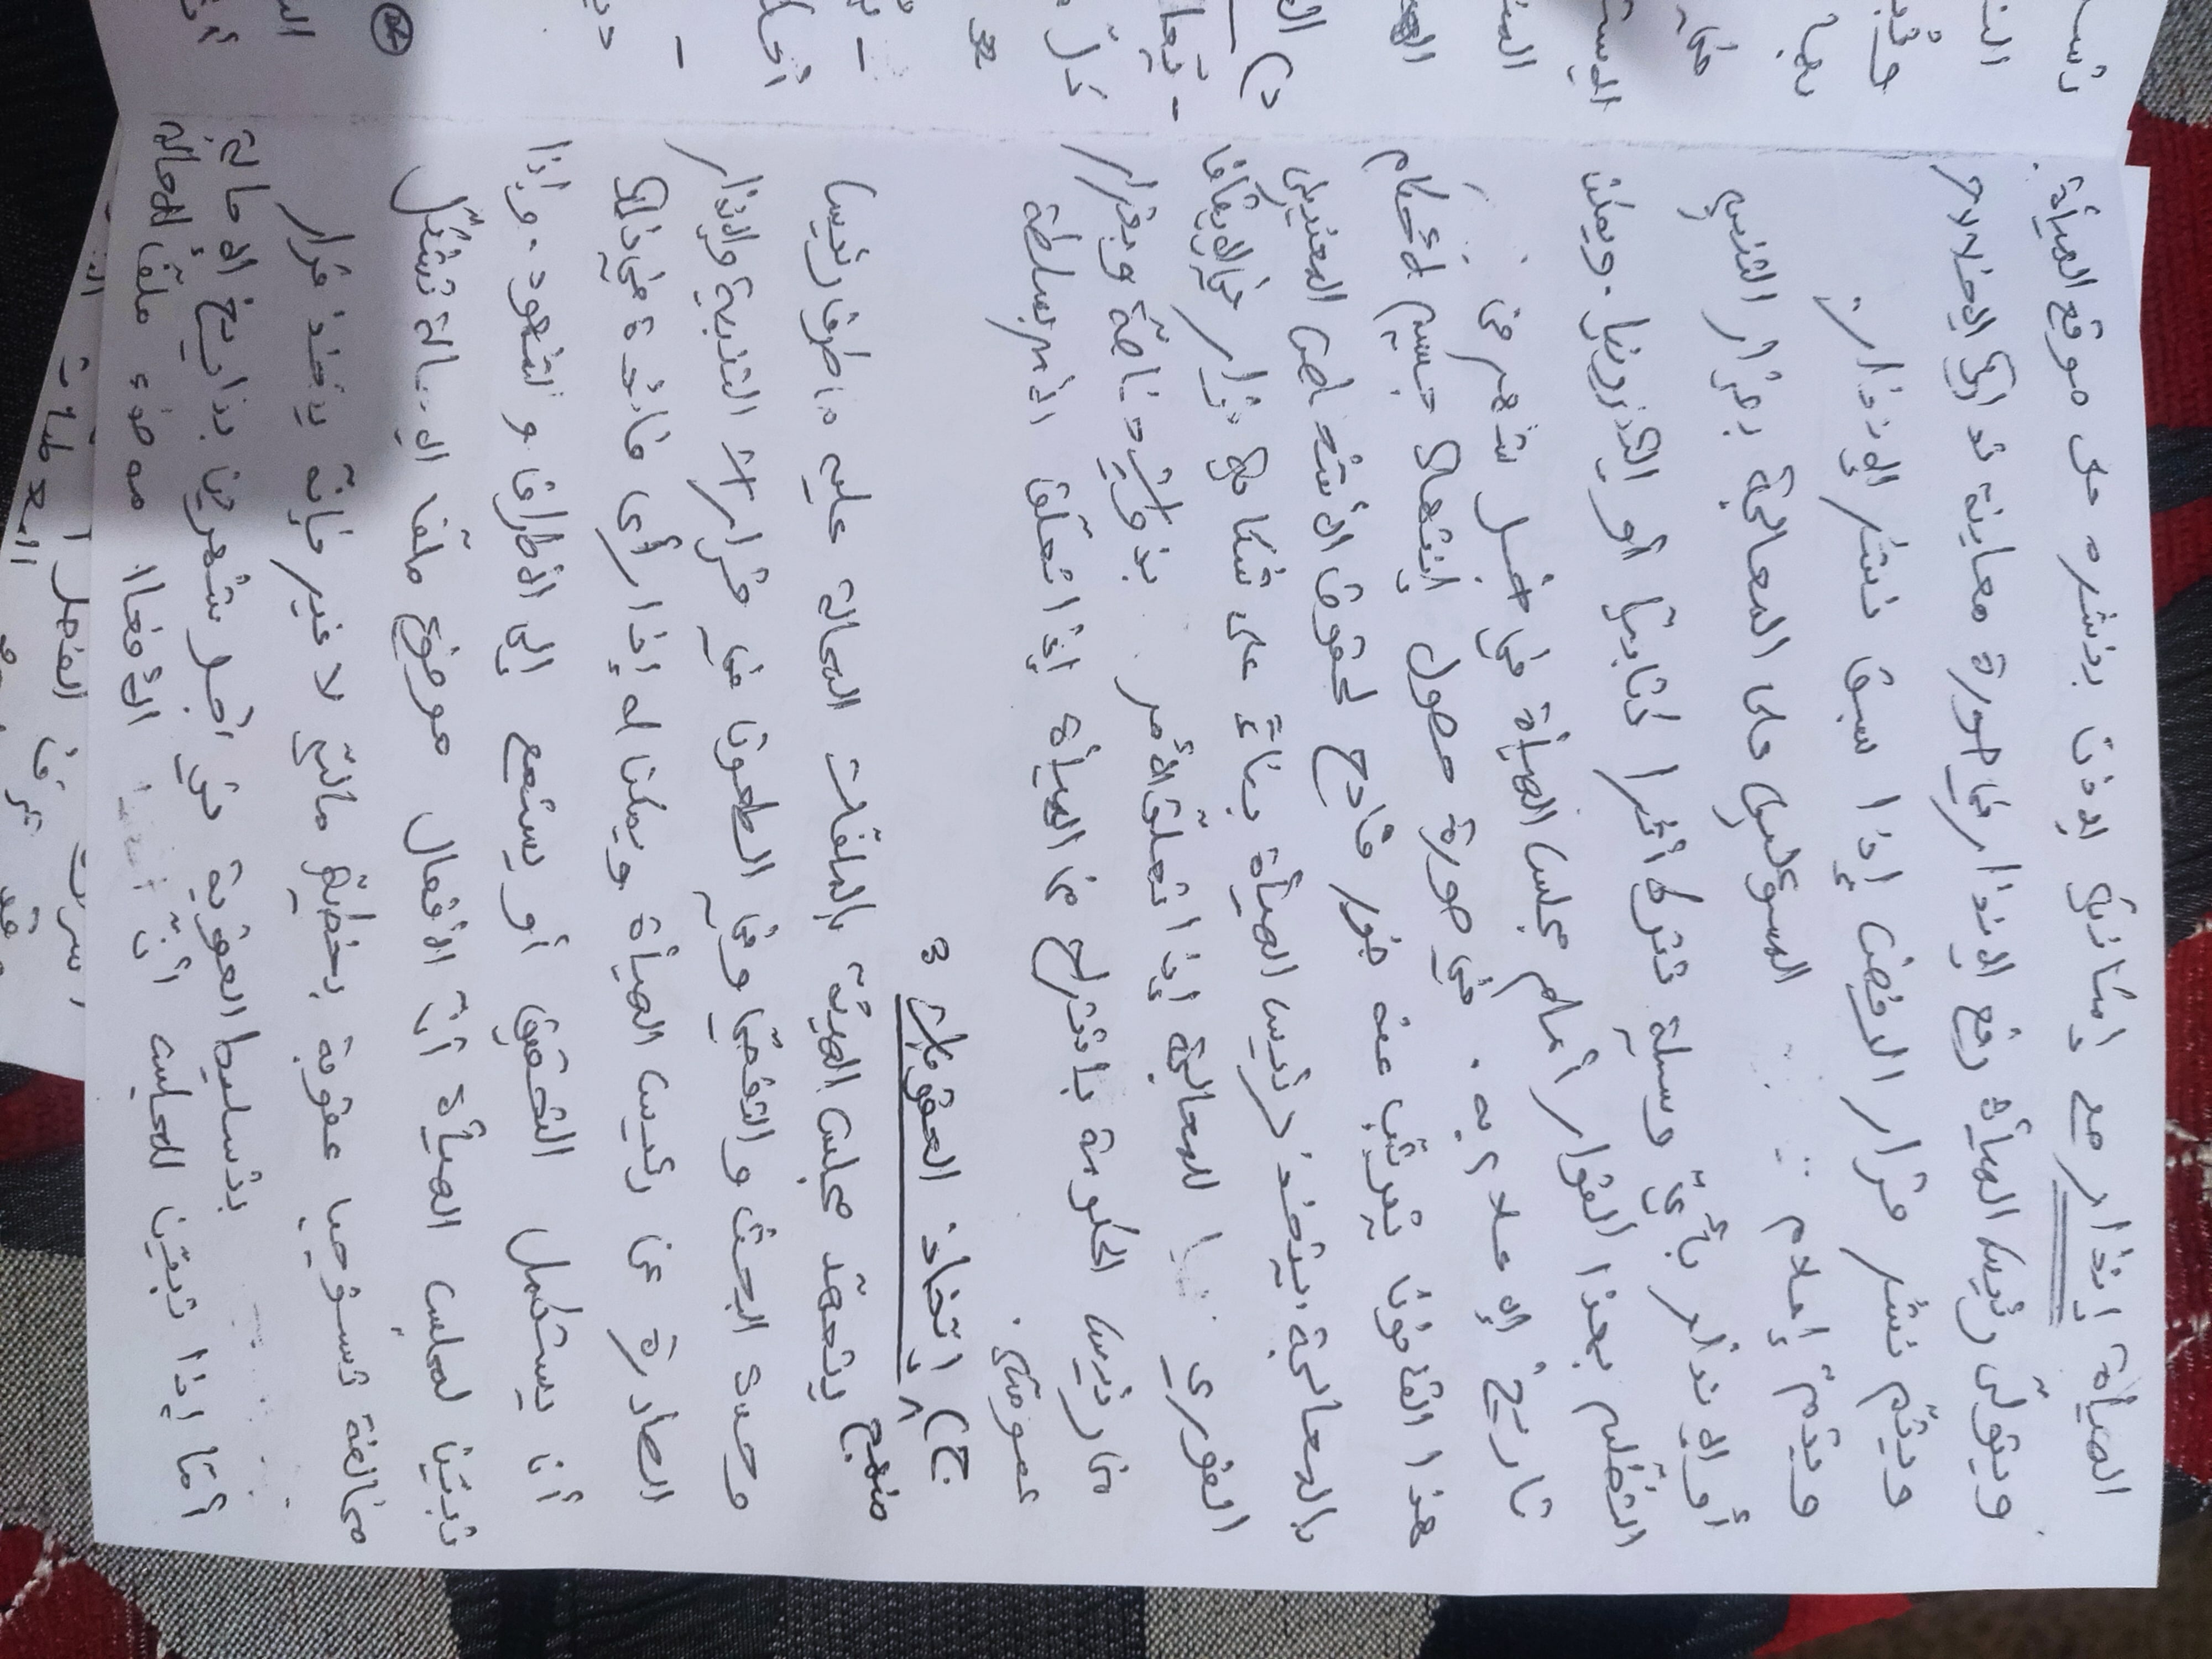 الهيأة إنذار مع إمكانية الإذن بنشره على موقع الهيأة.
ويتولّى رئيس الهيأة رفع الإنذار في صورة معاينة تدارك الإخلالات
ويتم نشر قرار الرفض إذا سبق نشر الإنذار.
ويتم إعلام المسؤولين على المعالجة بقرار التنبيه
أو الإنذار بأيّ وسيلة تترك أثرا كتابيّا أو إلكترونيا. ويمكن
التظلم بهذا القرار أمام مجلس الهيأة في أجل شهر من
تاريخ الإعلام به. في صورة حصول إنتهاك جسيم لأحكام
هذا القانون يترتّب عنه ضرر فادح لحقوق الأشخاص المعنيين
بالمعالجة. يتخذ رئيس الهيأة بناءً على شكاية قرار في الإيقاف
الفوري للمعالجة إذا تعلّق الأمر بذوات خاصّة وبقرار
من رئيس الحكومة باقتراح من الهيأة إذا تعلّق الأمر بسلطة
عمومية.
ج) منهج إتخاذ العقوبات :
يتعهّد مجلس الهيئة بالملفّات المحالة عليه من طرف رئيس
وحدة البحث والتقصّي وفي الطعون في قرارات التنبيه والإنذار
الصادرة عن رئيس الهيأة ويمكن له إذا رأى فائدة في ذلك
أن يستكمل التحقيق أو يستمع إلى الأطراف والشهود. وإذا
تبيّن لمجلس الهيأة أنّ الأفعال موضوع ملفّ الإحالة تشكّل
مخالفة تستوجب عقوبة بخطيّة ماليّة لا غير فإنّه يتخذ قرار
بتسليط العقوبة في أجل شهرين بتاريخ الإحالة
أمّا إذا تبيّن للمجلس أنّ الأفعال موضوع ملفّ الإحالة